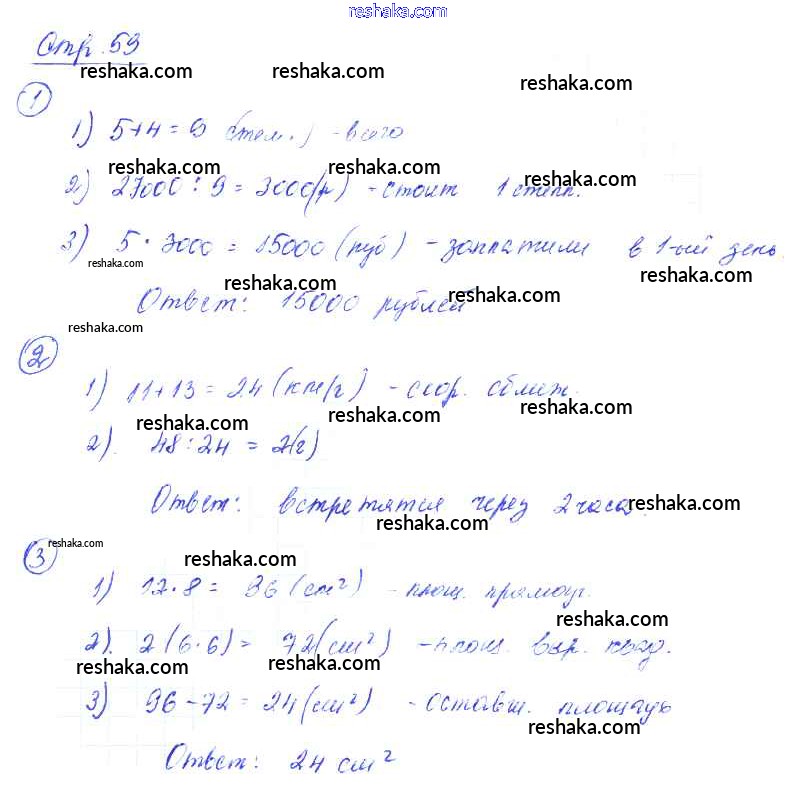 reshaka.com
Стр. 59
reshaka.com reshaka.com reshaka.com
1
1) 5+4=9 (тел.) - всего
reshaka.com reshaka.com reshaka.com
2) 27000 : 9 = 3000 (р) - стоит 1 степл.
reshaka.com reshaka.com reshaka.com
3) 5 · 3000 = 15000 (руб) - заплатили в 1-ый день.
reshaka.com reshaka.com reshaka.com
Ответ: 15000 рублей
reshaka.com reshaka.com
2
1) 11+13 = 24 (км/ч) - скор. сближ.
reshaka.com reshaka.com reshaka.com
2). 48 : 24 = 2(ч)
Ответ: встретятся через 2 часа.
reshaka.com reshaka.com
reshaka.com reshaka.com
3
1) 12·8 = 96 (см²) - площ. прямоуг.
reshaka.com reshaka.com reshaka.com
2). 2(6·6) = 72 (см²) - площ. выр. квад.
reshaka.com reshaka.com
3) 96-72 = 24 (см²) - оставш. площадь
reshaka.com reshaka.com reshaka.com
Ответ: 24 см²